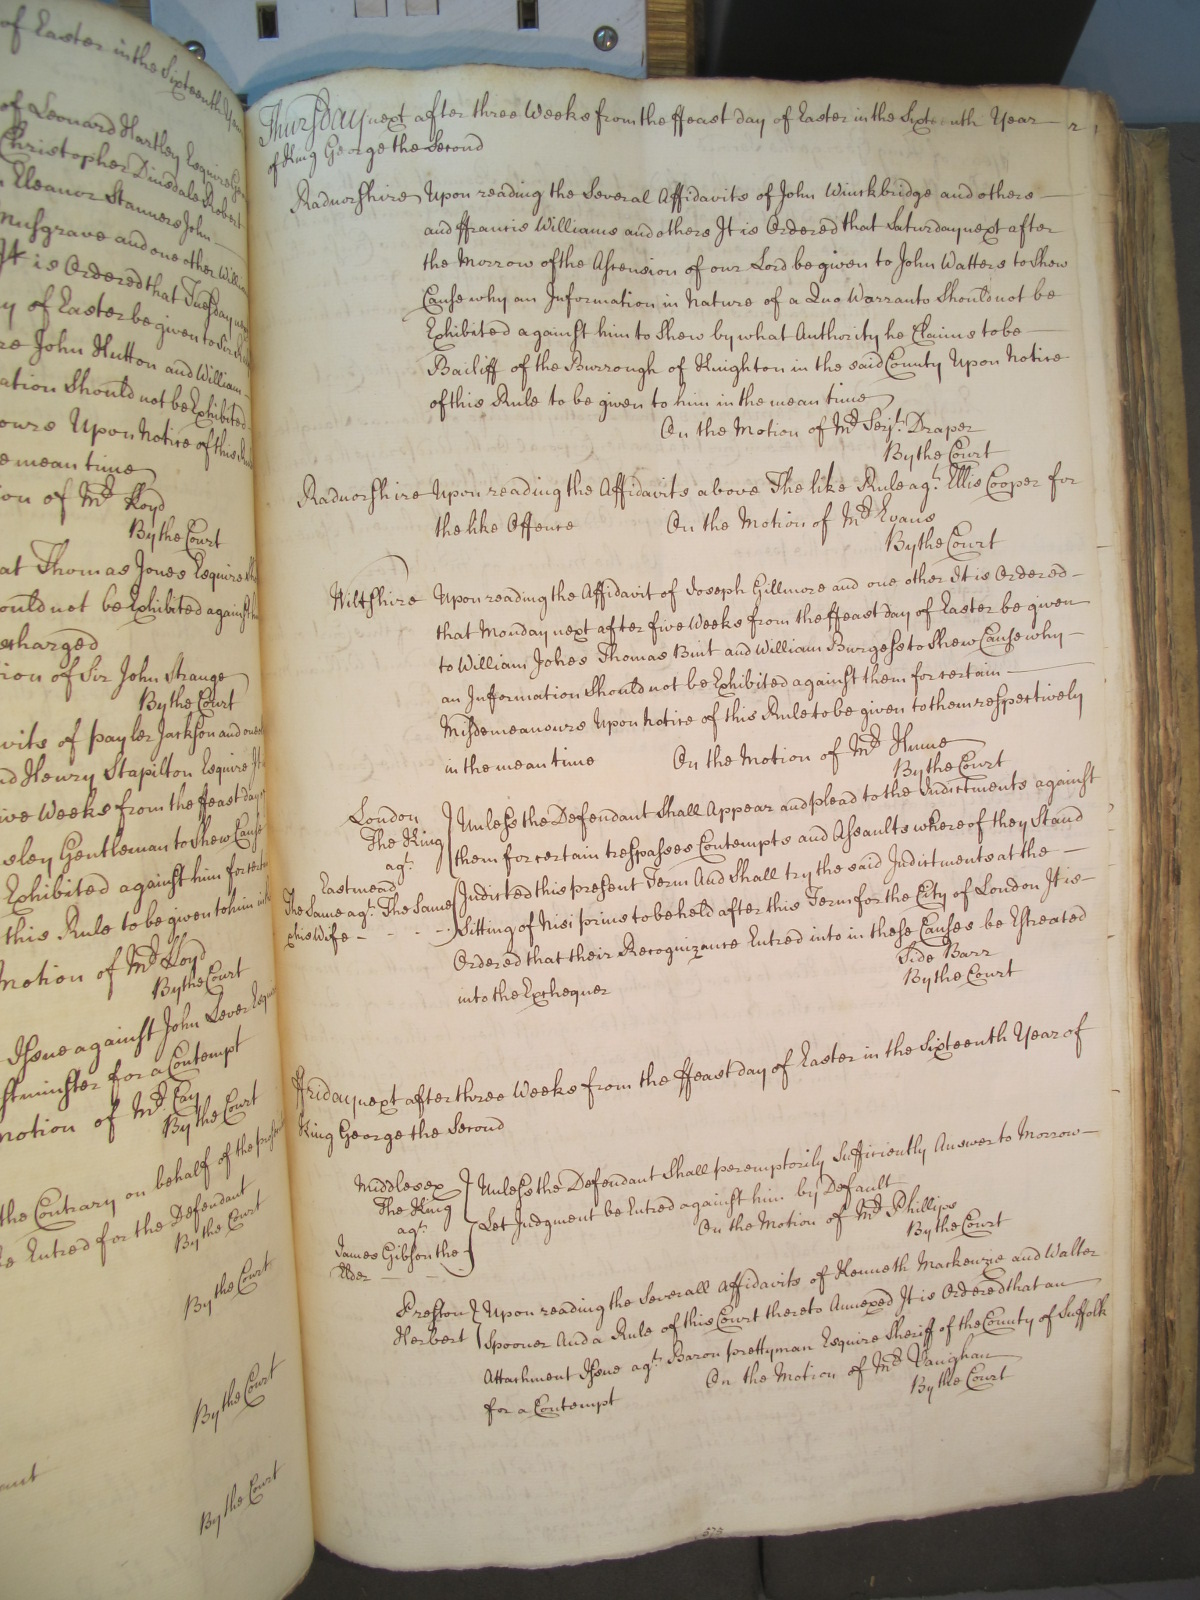 of Easter in the Sixteenth Year
of Leonard Hartley Esquire
Christopher Dinsdale Robert
Eleanor Stanners John
Musgrave and one other William
It is Ordered that Tuesday next
of Easter be given to Sir
John Hutton and William
ation Should not be Exhibited
Upon Notice of this
mean time
ion of Mr. Lloyd
By the Court
at Thomas Jones Esquire
ould not be Exhibited against
charged
ion of Sir John Strange
By the Court
vits of payler Jackson and one
nd Henry Stapilton Esquire It
ive Weeks from the ffeast day
sley Gentleman to Shew Cause
Exhibited against him for certain
this Rule to be given to him in
Motion of Mr. Lloyd
By the Court
Issue against John Lever
stminster for a Contempt
motion of Mr. Cay
By the Court
the Contrary on behalf of the
be Entred for the Defendant
By the Court
By the Court
By the Court
By the Court
Thursday next after three Weeks from the ffeast day of Easter in the Sixteenth Year
of King George the Second
Radnorshire Upon reading the Several Affidavits of John Winckbridge and others
and ffrancis Williams and others It is Ordered that Saturday next after
the Morrow of the Ascension of our Lord be given to John Watters to Shew
Cause why an Information in Nature of a Quo Warranto Should not be
Exhibited against him to Shew by what Authority he Claims to be
Bailiff of the Burrough of Knighton in the said County Upon Notice
of this Rule to be given to him in the mean time
On the Motion of Mr. Serjt. Draper
By the Court
Radnorshire Upon reading the Affidavits above The like Rule agt. Ellis Cooper for
the like Offence On the Motion of Mr. Evans
By the Court
Wiltshire Upon reading the Affidavit of Joseph Gillmore and one other It is Ordered
that Monday next after five Weeks from the ffeast day of Easter be given
to William Jokes Thomas Buit and William Burgess to Shew Cause why
an Information Should not be Exhibited against them for certain
Misdemeanours Upon Notice of this Rule to be given to them respectively
in the mean time On the Motion of Mr. Hume
By the Court
London
The King
agt.
Eastmead
The Same agt. The Same
& his Wife
Unless the Defendant Shall Appear and plead to the Indictments against
them for certain trespasses Contempts and Assaults whereof they Stand
Indicted this present Term And Shall try the said Indictments at the
Sitting of Nisi prius to be held after this Term for the City of London It is
Ordered that their Recognizance Entred into in these Causes be Estreated
into the Exchequer Side Barr
By the Court
ffriday next after three Weeks from the ffeast day of Easter in the Sixteenth Year of
King George the Second
Middlesex
The King
agt.
James Gibson the
Elder
Unless the Defendant Shall peremptorily Sufficiently Answer to Morrow
Let Judgment be Entred against him by Default
On the Motion of Mr. Phillips
By the Court
Preston
Herbert
Upon reading the Severall Affidavits of Kenneth Mackenzie and Walter
Spooner And a Rule of this Court thereto Annexed It is Ordered that an
Attachment Issue agt. Baron prettyman Esquire Sheriff of the County of Suffolk
for a Contempt On the Motion of Mr. Vaughan
By the Court